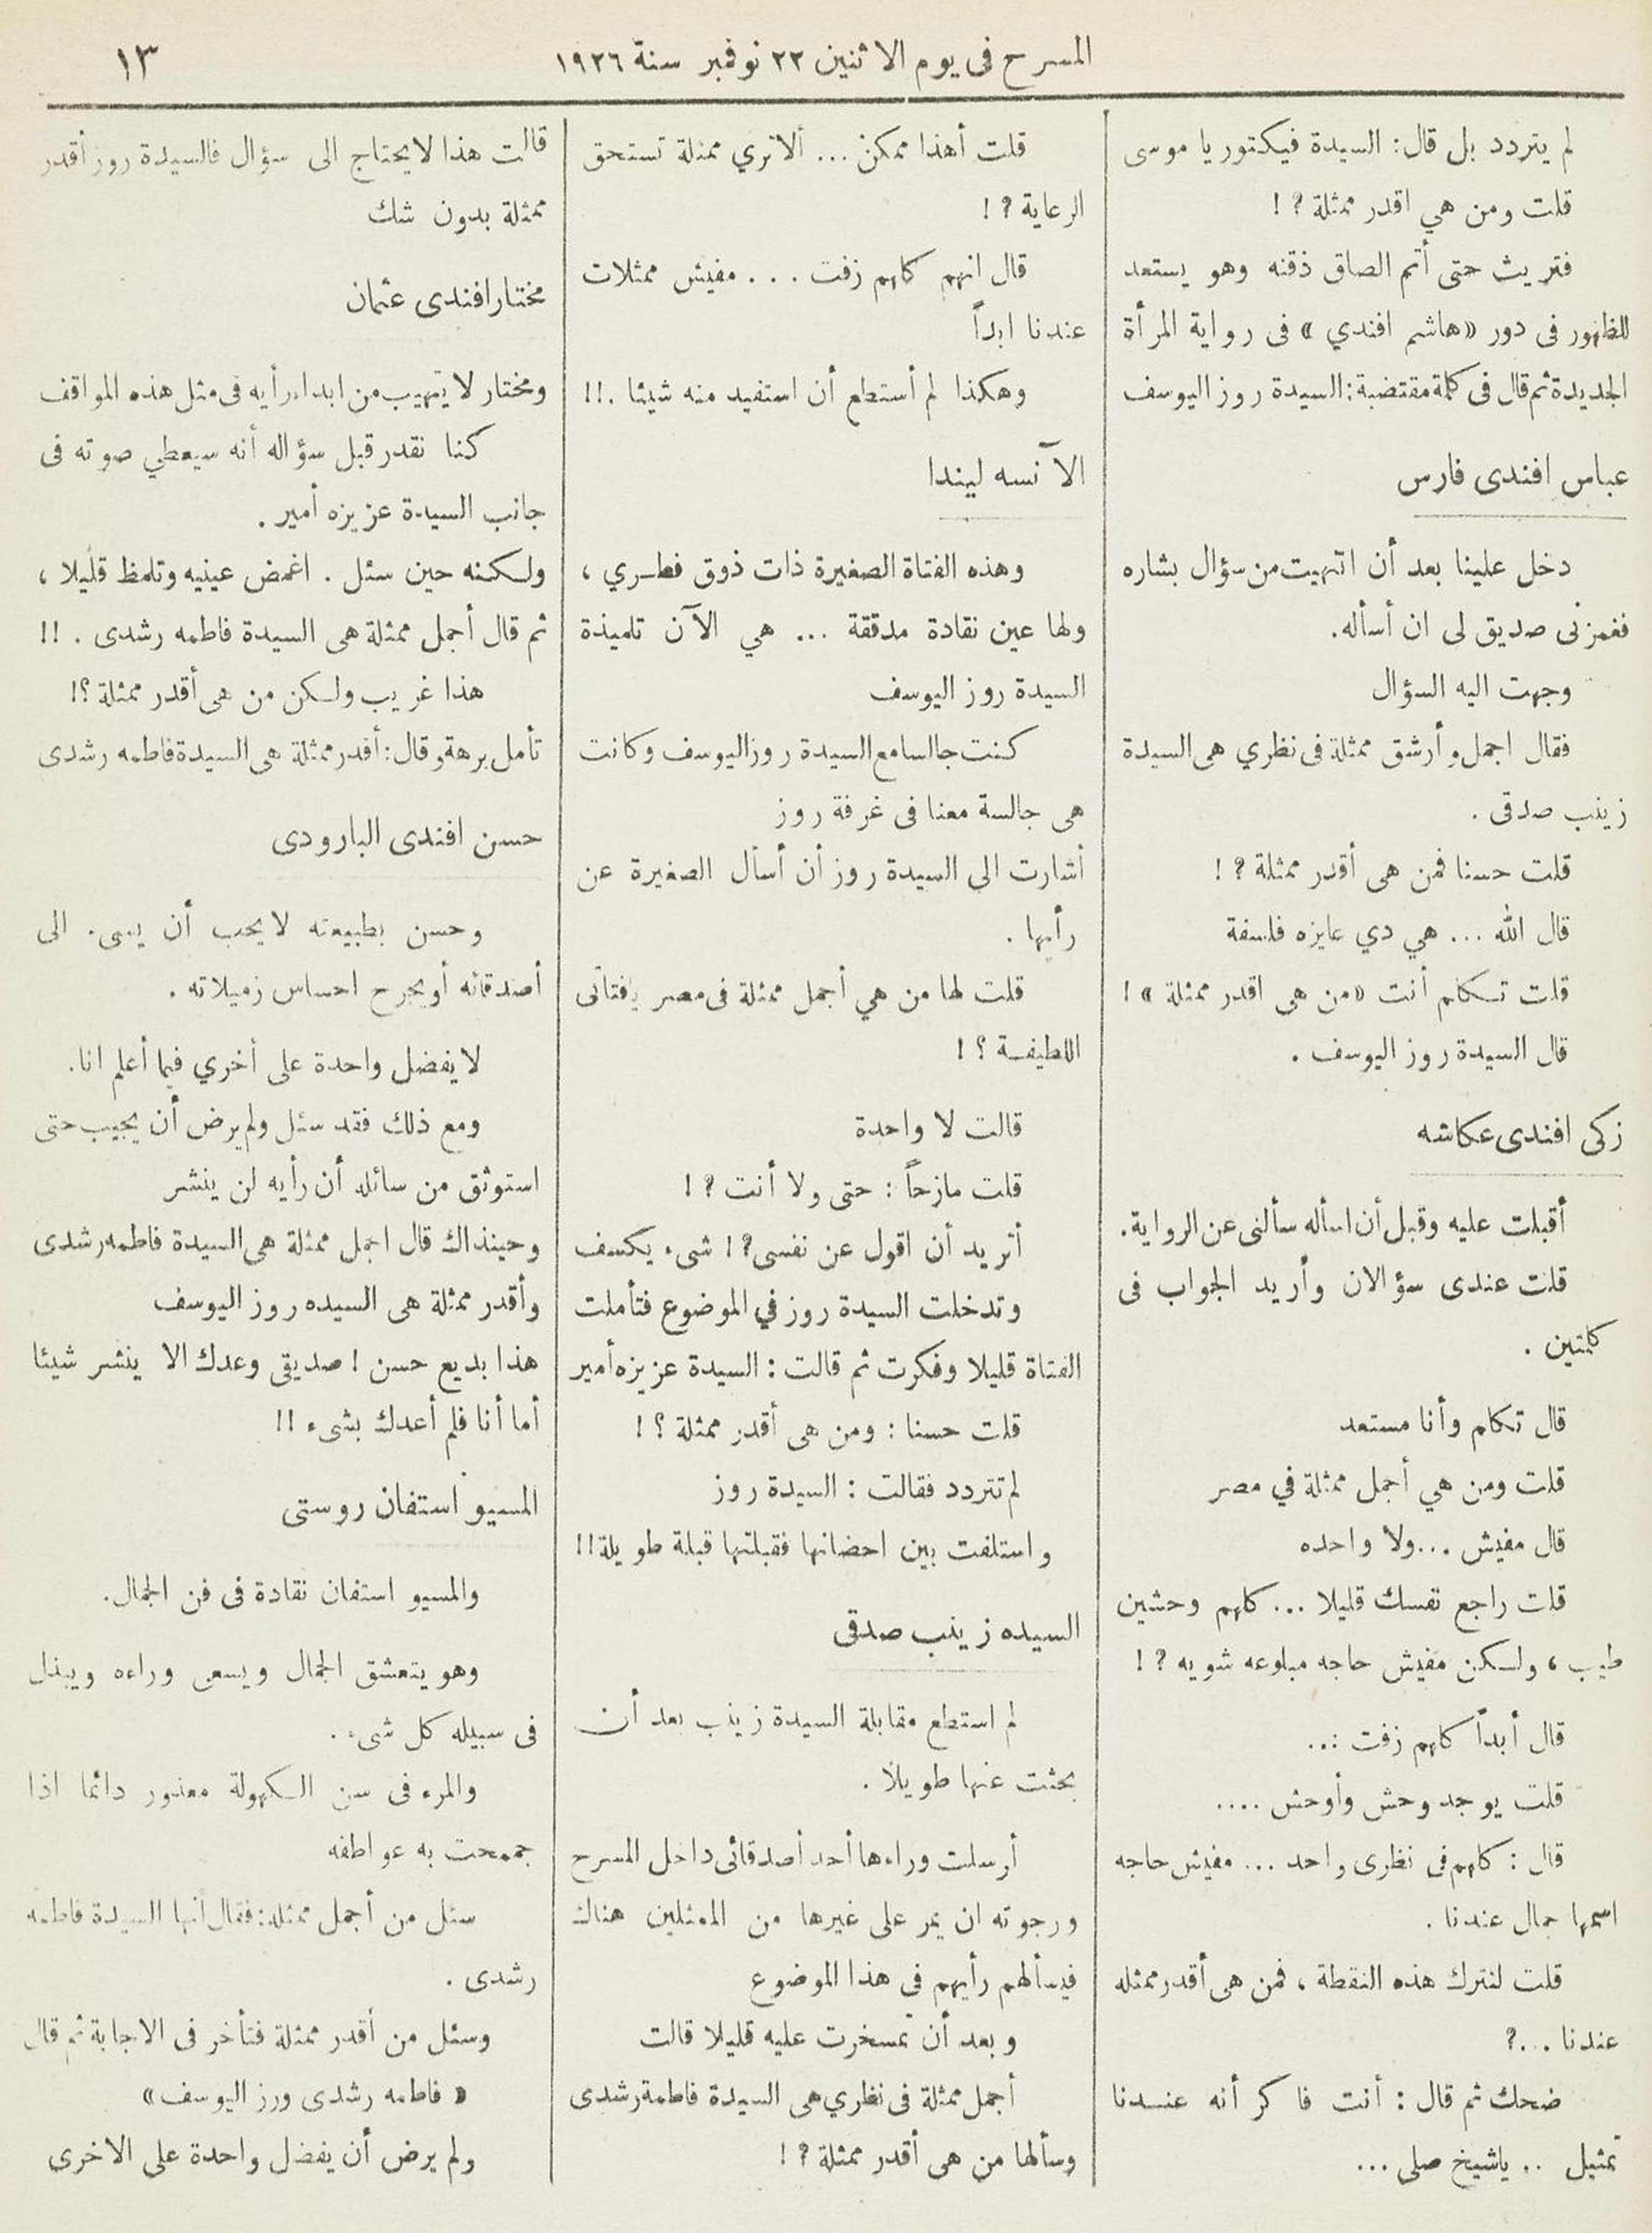 المسرح فى يوم الاثنين ٢٢ نوفمبر سنة ١٩٢٦
١٣
لم يتردد بل قال: السيدة فيكتوريا موسى
قلت ومن هي اقدر ممثلة ? !
فتريث حتى أتم الصاق ذقنه وهو يستعد
للظهور فى دور «هاشم افندي» فى رواية المرأة
الجديدة ثم قال فى كلمة مقتضبة: السيدة روز اليوسف
عباس افندى فارس
دخل علينا بعد أن انتهيت من سؤال بشاره
فغمزنى صديق لى ان أسأله.
وجهت اليه السؤال
فقال اجمل وأرشق ممثلة فى نظري هى السيدة
زينب صدقى .
قلت حسنا فمن هى أقدر ممثلة ? !
قال الله ... هي دي عايزه فلسفة
قلت تكلم أنت «من هى اقدر ممثلة» !
قال السيدة روز اليوسف .
زكى افندى عكاشه
أقبلت عليه وقبل أن اسأله سألنى عن الرواية.
قلت عندى سؤالان وأريد الجواب فى
كلمتين .
قال تكلم وأنا مستعد
قلت ومن هي أجمل ممثلة في مصر
قال مفيش ...ولا واحده
قلت راجع نفسك قليلا ... كلهم وحشين
طيب ، ولكن مفيش حاجه مبلوعه شويه ? !
قال أبداً كلهم زفت ...
قلت يوجد وحش وأوحش ....
قال : كلهم فى نظرى واحد ... مفيش حاجه
اسمها جمال عندنا .
قلت لنترك هذه النقطة ، فمن هى أقدر ممثله
عندنا ...?
ضحك ثم قال : أنت فاكر أنه عندنا
تمثيل .. ياشيخ صلى ...
قلت أهذا ممكن ... ألا تري ممثلة تستحق
الرعاية ? !
قال انهم كلهم زفت ... مفيش ممثلات
عندنا ابداً
وهكذا لم أستطع أن استفيد منه شيئا .!!
الآنسه ليندا
وهذه الفتاة الصغيرة ذات ذوق فطري ،
ولها عين نقادة مدققة ... هي الآن تلميذة
السيدة روز اليوسف
كنت جالسا مع السيدة روز اليوسف وكانت
هى جالسة معنا فى غرفة روز
أشارت الى السيدة روز أن أسأل الصغيرة عن
رأيها .
قلت لها من هي أجمل ممثلة فى مصر يافتاتى
اللطيفة ؟ !
قالت لا واحدة
قلت مازحاً : حتى ولا أنت ? !
أتريد أن اقول عن نفسى? ! شىء يكسف
وتدخلت السيدة روز في الموضوع فتأملت
الفتاة قليلا وفكرت ثم قالت : السيدة عزيزه أمير
قلت حسنا : ومن هى أقدر ممثلة ؟ !
لم تتردد فقالت : السيدة روز
واستلفت بين احضانها فقبلتها قبلة طويلة!!
السيده زينب صدقى
لم استطع مقابلة السيدة زينب بعد أن
بحثت عنها طويلا .
أرسلت وراءها أحد أصدقائى داخل المسرح
ورجوته ان يمر على غيرها من الممثلين هناك
فيسألهم رأيهم فى هذا الموضوع
وبعد أن تمسخرت عليه قليلا قالت
أجمل ممثلة فى نظري هى السيدة فاطمة رشدى
وسألها من هى أقدر ممثلة ? !
قالت هذا لا يحتاج الى سؤال فالسيدة روز أقدر
ممثلة بدون شك
مختار افندى عثمان
ومختار لا يتهيب من ابداء رأيه فى مثل هذه المواقف
كنا نقدر قبل سؤاله أنه سيعطي صوته فى
جانب السيدة عزيزه أمير .
ولكنه حين سئل . اغمض عينيه وتلمظ قليلا ،
ثم قال أجمل ممثلة هى السيدة فاطمه رشدى . !!
هذا غريب ولكن من هى أقدر ممثلة ؟!
تأمل برهة وقال: أقدر ممثلة هى السيدة فاطمه رشدى
حسن افندى البارودى
وحسن بطبيعته لا يحب أن يسىء الى
أصدقائه أو يجرح احساس زميلاته .
لا يفضل واحدة على أخري فيما أعلم انا.
ومع ذلك فقد سئل ولم يرض أن يجيب حتى
استوثق من سائله أن رأيه لن ينشر
وحينذاك قال اجمل ممثلة هى السيدة فاطمه رشدى
وأقدر ممثلة هى السيده روز اليوسف
هذا بديع حسن ! صديقى وعدك الا ينشر شيئا
أما أنا فلم أعدك بشىء !!
المسيو استفان روستى
والمسيو استفان نقادة فى فن الجمال.
وهو يتعشق الجمال ويسعى وراءه ويبذل
فى سبيله كل شىء .
والمرء فى سن الكهولة معذور دائما اذا
جمحت به عواطفه
سئل من أجمل ممثله: فقال أنها السيدة فاطمه
رشدى .
وسئل من أقدر ممثلة فتأخر فى الاجابة ثم قال
« فاطمه رشدى ورز اليوسف»
ولم يرض أن يفضل واحدة على الاخرى